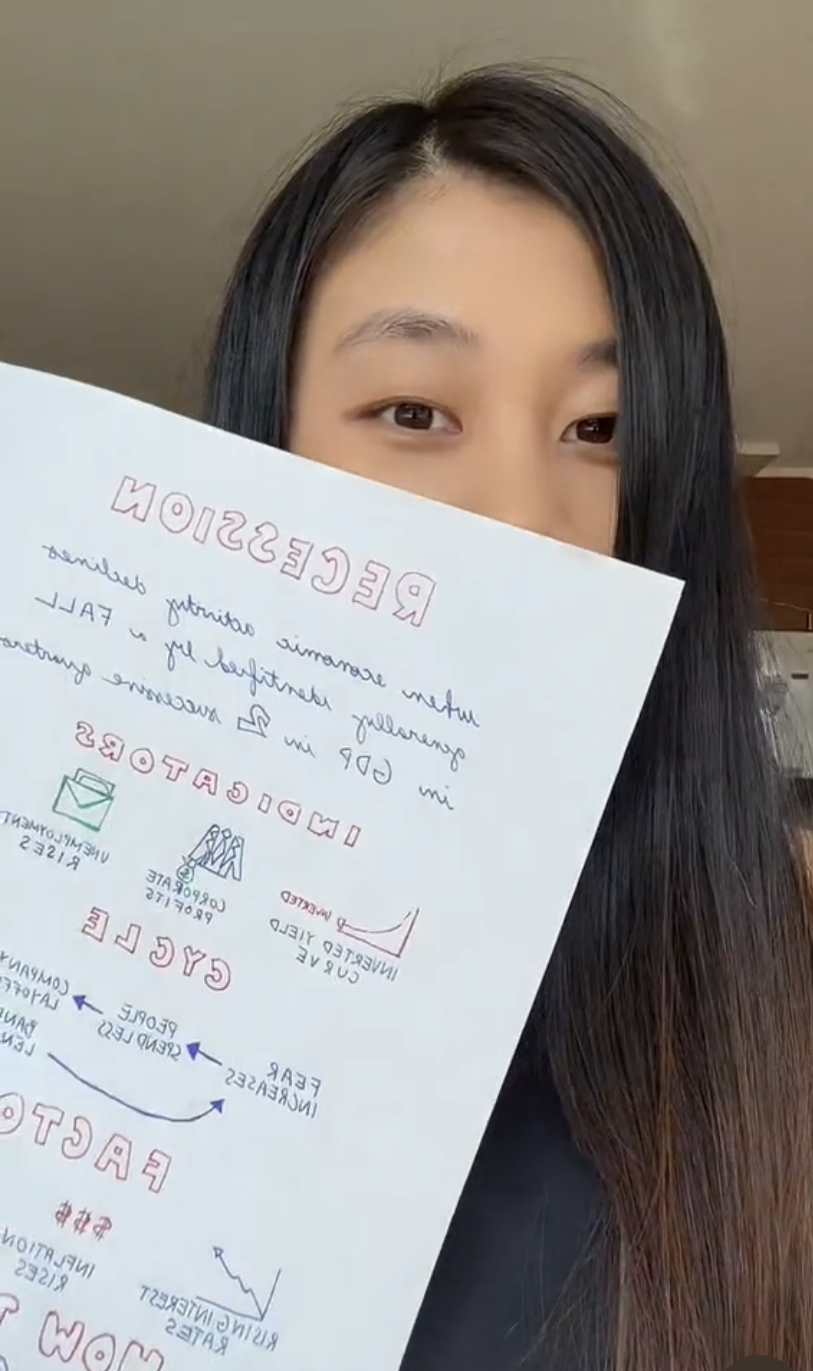 RECESSION
when economic activity declines
generally identified by a FALL
in GDP in 2 successive quarters
INDICATORS
INVERTED
INVERTED YIELD
CURVE
$
CORPORATE
PROFITS
UNEMPLOYMENT
RISES
CYCLE
FEAR
INCREASES
PEOPLE
SPEND LESS
COMPANY
LAYOFF
BAN
LEN
FACTO
RISING INTEREST
RATES
$$$
INFLATION
RISES
HOW T